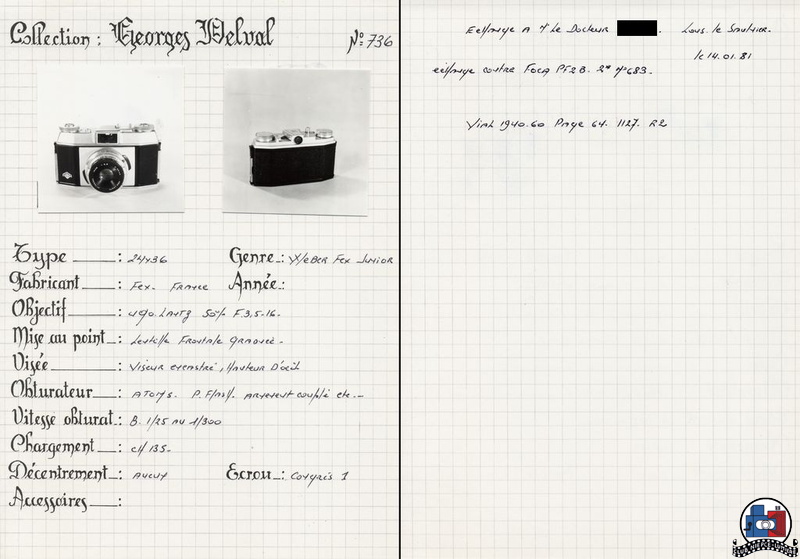 Collection : Georges Delval Nº 736
Type : 24x36 Genre : Weber Fex Junior
Fabricant : Fex. France Année :
Objectif : F.3,5-16.
Mise au point : Lentille Frontale
Visée : Viseur , Hauteur D'œil
Obturateur : Atoms. P. Flash. Armement couplé etc...
Vitesse obturat. : B. 1/25 au 1/300
Chargement : ch 135.
Décentrement : Aucun Ecrou : Congrès 1
Accessoires :
Echange A Mr Le Docteur . Lons. le Saunier.
le 14.01.81
échange contre Foca PF2B. 2* Nº683.
Vial 1940.60 Page 64. 1127. R2